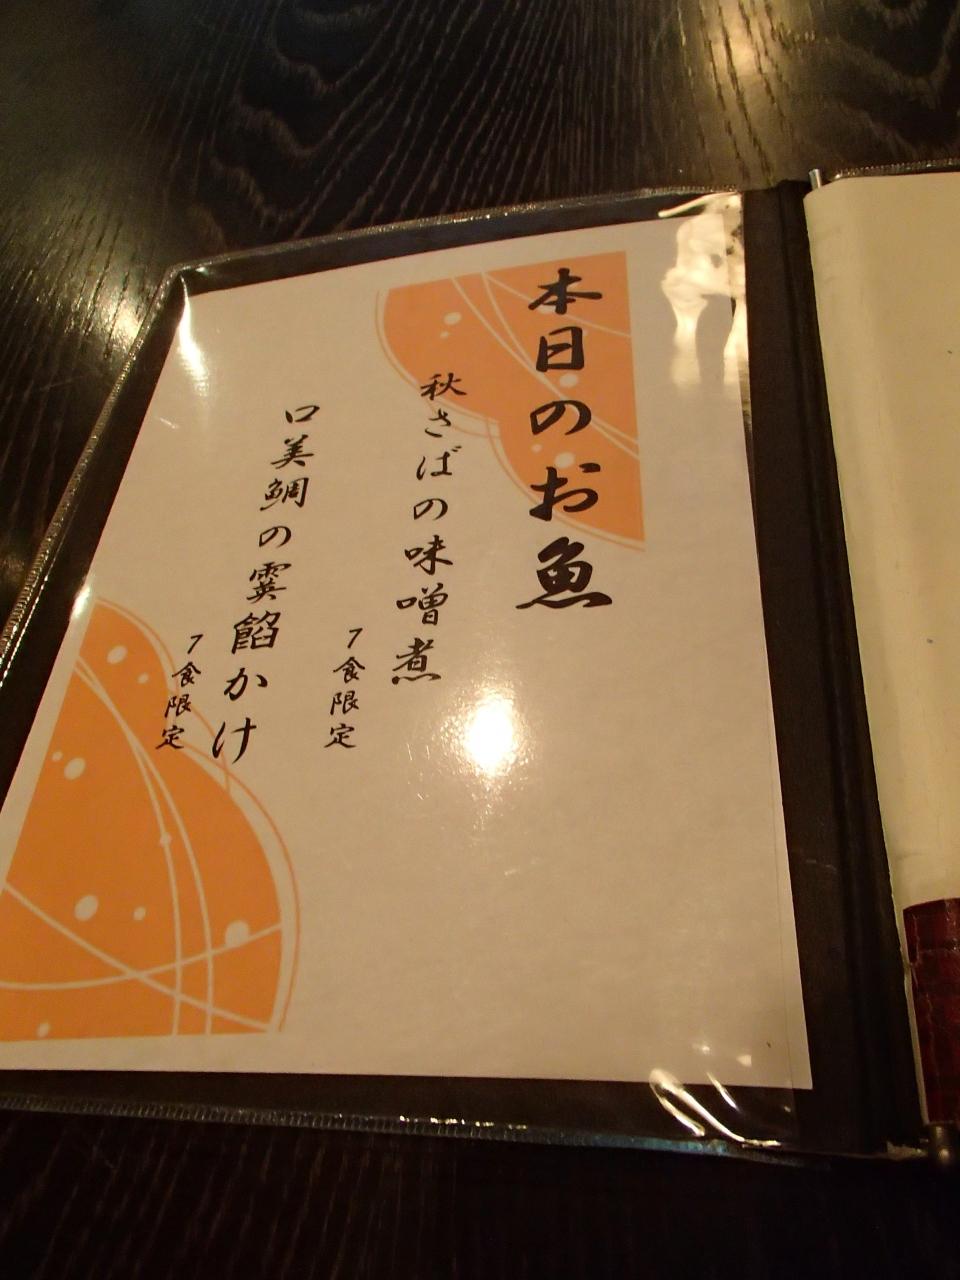 本日のお魚
秋さばの味噌煮
7食限定
口美鯛の霙餡かけ
7食限定